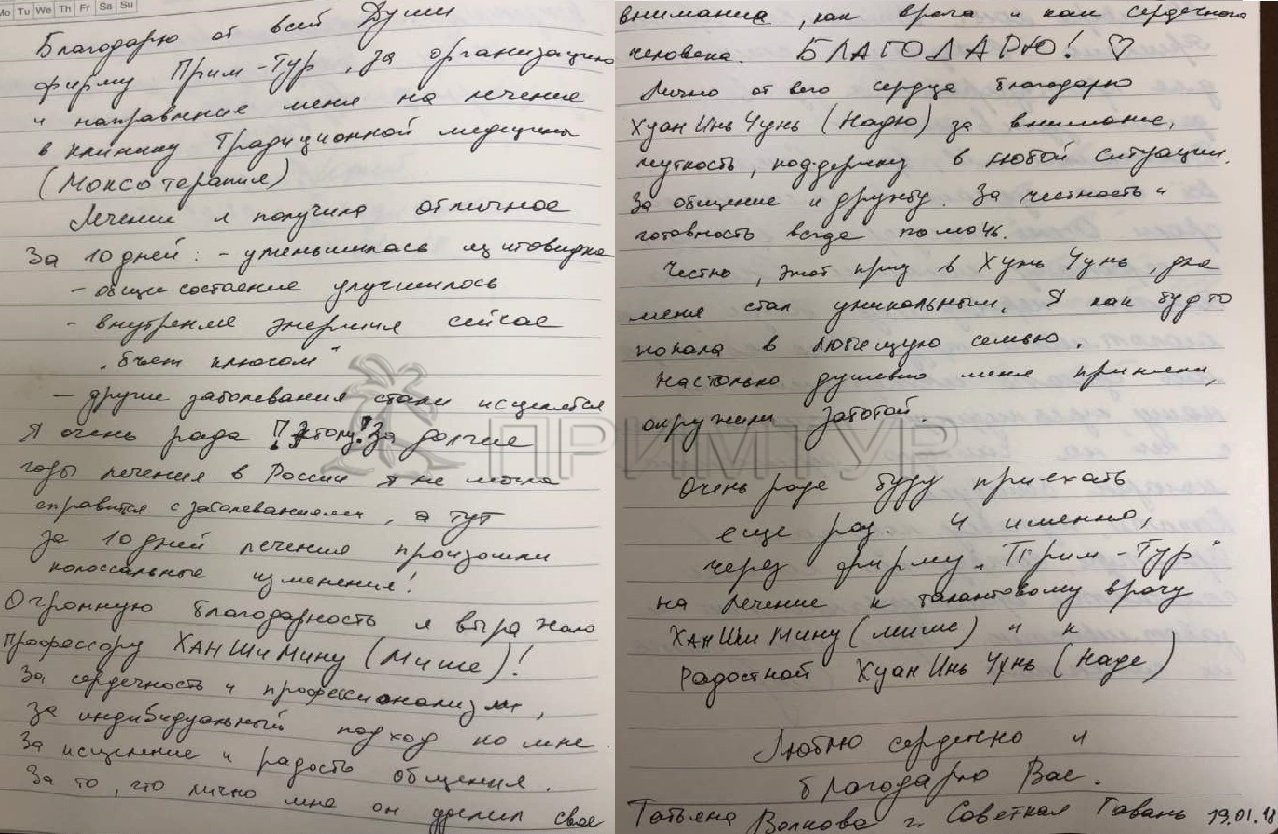 Mo Tu We Th Fr Sa Su
Благодарю от всей Души
фирму Прим-Тур, за организацию
и направление меня на лечение
в клинику Традиционной медицины
(Моксотерапия)
Лечение я получила отличное
За 10 дней: - уменьшилась щитовидка
- общее состаение улучшилось
- внутренняя энергия сейчас
"бьет ключом"
- другие заболевания стали исцелятся
Я очень рада !! Этому!! За долгие
годы лечения в России я не могла
справится с заболеванием, а тут
за 10 дней лечения произошли
колоссальные изменения!
Огромную благодарность я выражаю
Профессору ХАН Ши Мину (Мише)!
За сердечность и профессионализм,
За индивидуальный подход ко мне
За исцеление и радость общения.
За то, что лично мне он уделил свое
внимание, как врача и как сердечного
человека. БЛАГОДАРЮ! ♡
Лично от всего сердца благодарю
Хуан Инь Чунь (Надю) за внимание,
чуткость, поддержку в любой ситуации.
За общение и дружбу. За честность и
готовность всегда помочь.
Честно, этот приезд в Хунь Чунь, для
меня стал уникальным. Я как будто
попала в любящую семью.
Настолько душевно меня приняли,
окружили заботой.
ПРИМТУР
Очень рада буду приехать
еще раз. И именно,
через фирму "Прим-Тур"
на лечение к талантовому врачу
Хан Ши Мину (Мише) и к
Радостной Хуан Инь Чунь (Наде)
Люблю сердечно и
благодарю Вас.
Татьяна Волкова г. Советская Гавань 19.01.18